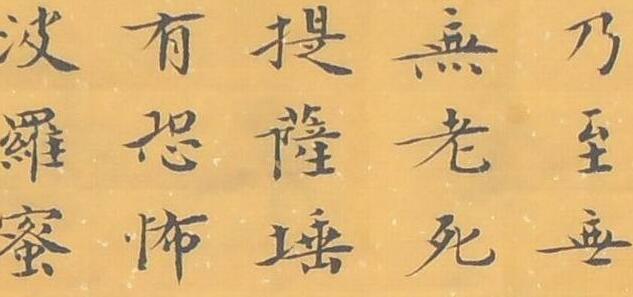 乃至無
無老死
提薩埵
有恐怖
波羅蜜